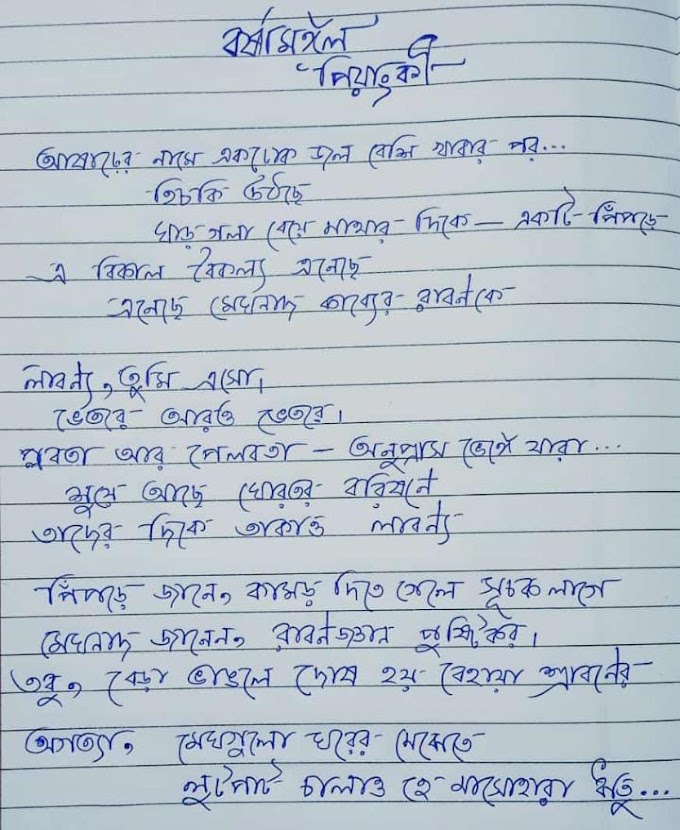 বর্ষামঙ্গল
পিয়াংকী
আষাঢ়ের নামে একঢোক জল বেশি খাবার পর...
হিচকি উঠছে
ঘাড় গলা বেয়ে মাথার দিকে — একটি পিঁপড়ে
এ বিকাল বৈকল্য এনেছে
এনেছে মেঘনাদ কাব্যের রাবনকে
লাবন্য, তুমি এসো।
ভেতরে আরও ভেতরে।
প্লবতা আর পেলবতা — অনুপ্রাস ভেঙ্গে যারা...
শুয়ে আছে ঘোরতর বরিষনে
তাদের দিকে তাকাও লাবন্য
পিঁপড়ে জানে, কামড় দিতে গেলে সূচক লাগে
মেঘনাদ জানেন, রাবনজ্ঞান পুষ্টিকর।
তবু, বেড়া ভাঙলে দোষ হয় বেহায়া শ্রাবনের
অগত্যা, মেঘগুলো ঘরের মেঝেতে
লুটপাট চালাও হে মাসোহারা ঋতু...